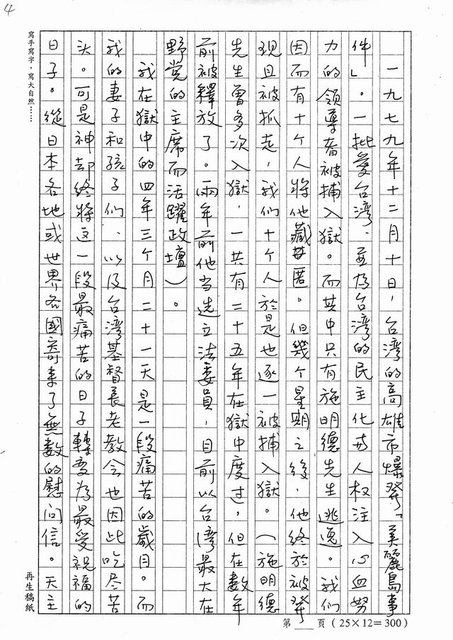 4
寫手寫字，寫大自然……
一九七九年十二月十日，台湾的高雄市爆発「美麗島事
件」。一批愛台湾，並為台湾的民主化与人权注入心血努
力的領導者被捕入獄。而其中只有施明德先生逃逸。我們
因而有十个人將他藏匿。但幾个星期之後，他終於被発
現且被抓走，我們十个人於是也逐一被捕入獄。（施明德
先生曾多次入獄，一共有二十五年在獄中度过，但在数年
前被釋放了。兩年前他当选立法委員，目前以台湾最大在
野党的主席而活躍政壇）。
我在獄中的四年三个月二十一天是一段痛苦的歲月。而
我的妻子和孩子們，以及台湾基督長老教会也因此吃尽苦
头。可是神却終將这一段最痛苦的日子轉変為最受祝福的
日子。從日本各地或世界各國寄来了無数的慰问信。天主
第　頁（25×12＝300）
再生稿紙